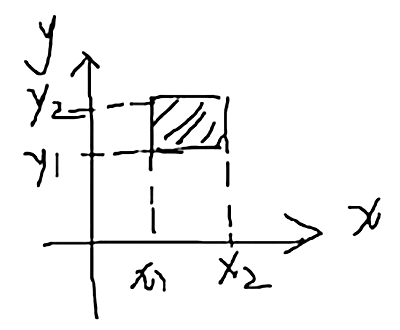 y
y2
y1
x
x1 x2